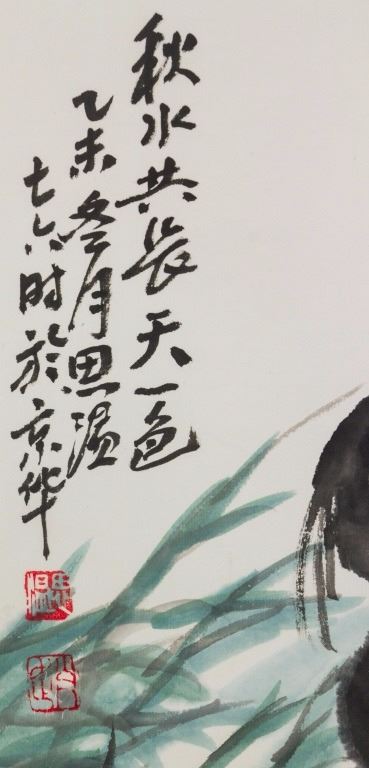 秋水共長天一色
乙未冬月思温
七六时於京华